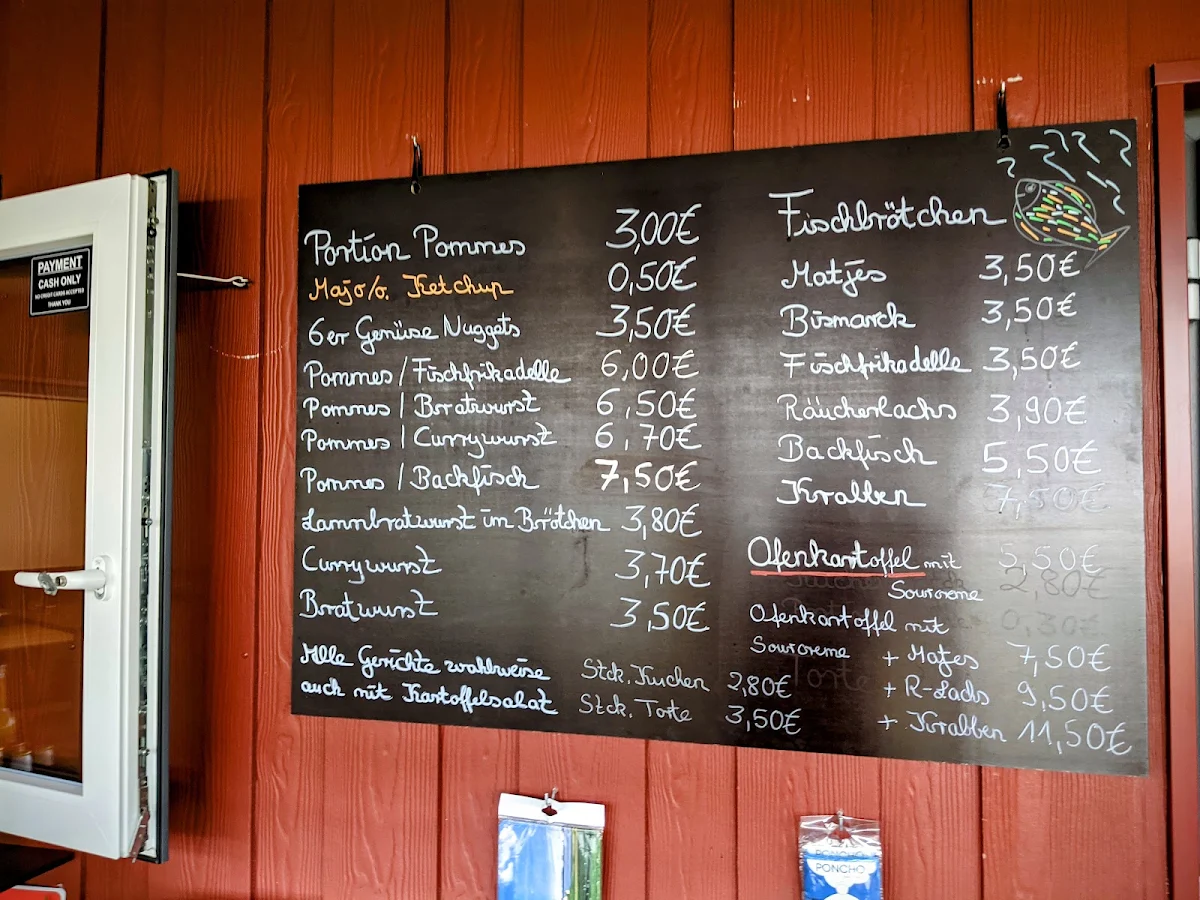 PAYMENT
CASH ONLY
NO CREDIT CARDS ACCEPTED
THANK YOU
Portion Pommes 3,00€
Majo/o. Ketchup 0,50€
6er Gemüse Nuggets 3,50€
Pommes / Fischfrikadelle 6,00€
Pommes / Bratwurst 6,50€
Pommes / Currywurst 6,70€
Pommes / Backfisch 7,50€
Lammbratwurst im Brötchen 3,80€
Currywurst 3,70€
Bratwurst 3,50€
Alle Gerichte wahlweise
auch mit Kartoffelsalat
Stck. Kuchen 2,80€
Stck. Torte 3,50€
Fischbrötchen
Matjes 3,50€
Bismarck 3,50€
Fischfrikadelle 3,50€
Räucherlachs 3,90€
Backfisch 5,50€
Krabben 7,50€
Ofenkartoffel mit 5,50€
Sourcreme 2,80€
Ofenkartoffel mit 0,30€
Sourcreme + Matjes 7,50€
Torte + R-Lachs 9,50€
+ Krabben 11,50€
PONCHO